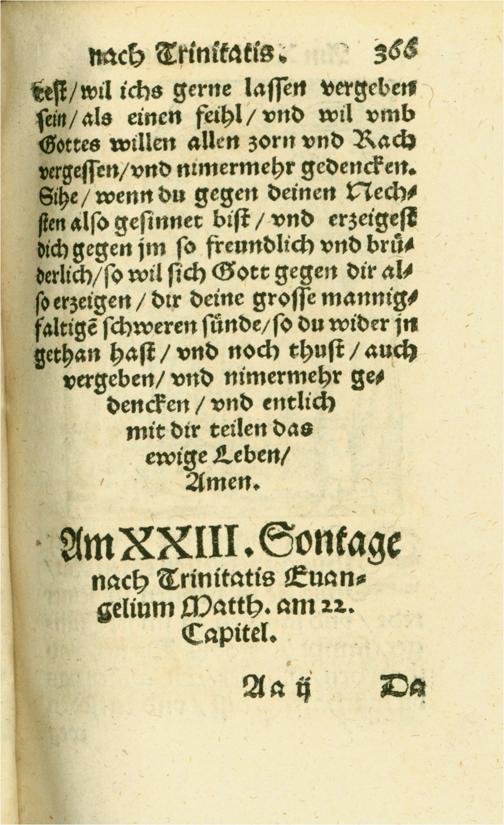 nach Trinitatis. 366
test/wil ichs gerne lassen vergeben
sein/als einen feihl/vnd wil vmb
Gottes willen allen zorn vnd Rach
vergessen/vnd nimermehr gedencken.
Sihe/wenn du gegen deinen Nech⸗
sten also gesinnet bist/vnd erzeigest
dich gegen jm so freundlich vnd brü⸗
derlich/so wil sich Gott gegen dir al⸗
so erzeigen/dir deine grosse mannig⸗
faltigẽ schweren sünde/so du wider jn
gethan hast/vnd noch thust/auch
vergeben/vnd nimermehr ge⸗
dencken/vnd entlich
mit dir teilen das
ewige Leben/
Amen.
Am XXIII. Sontage
nach Trinitatis Euan⸗
gelium Matth. am 22.
Capitel.
Aa ij Da